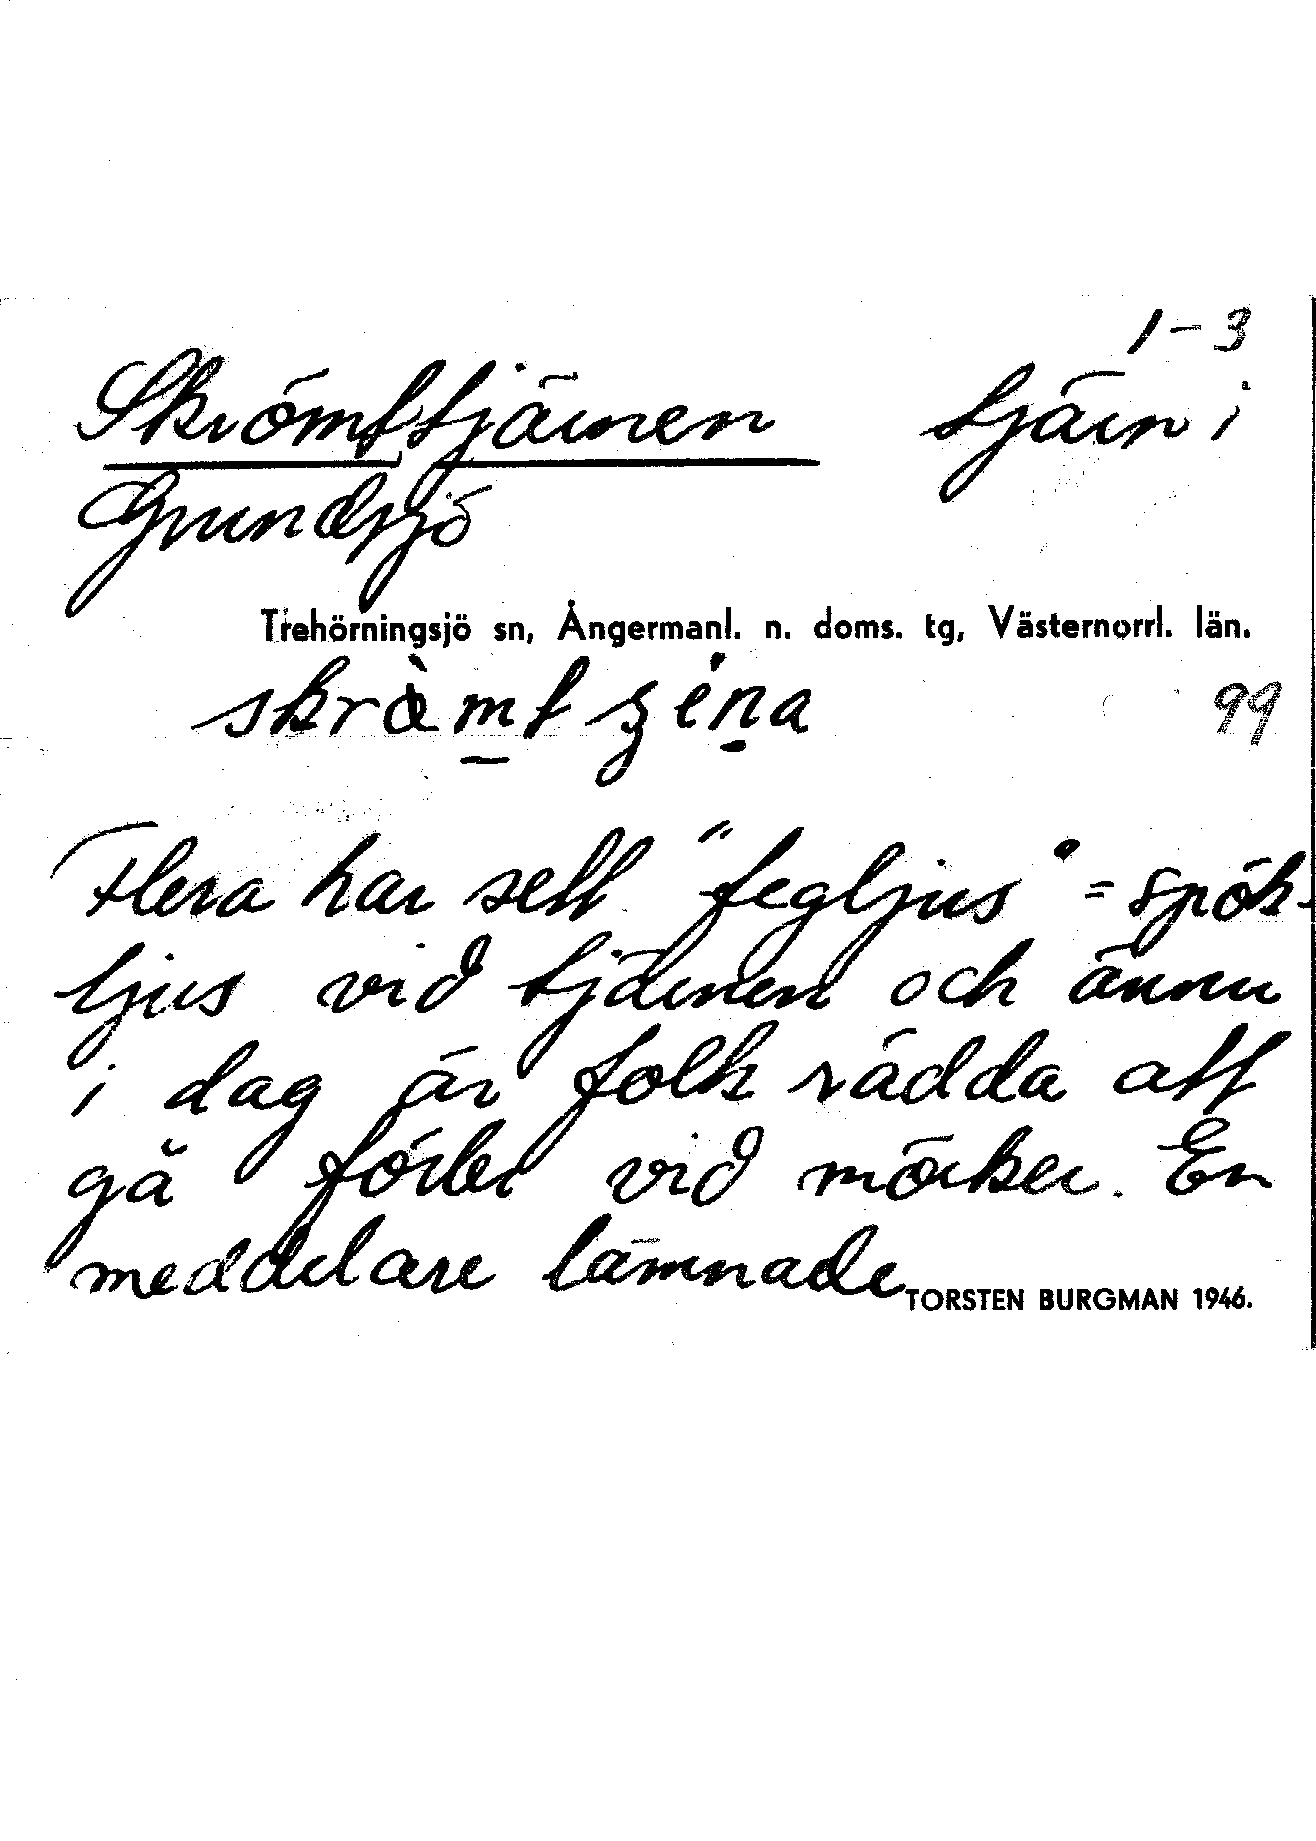 1-3
Skrömttjärnen tjärn i
Grundsjö
Trehörningsjö sn, Ångermanl. n. doms. tg, Västernorrl. län.
99
Flera har sett "fegljus" = spök-
ljus vid tjärnen och ännu
i dag är folk rädda att
gå förbi vid mörker. En
meddelare lämnade
TORSTEN BURGMAN 1946.